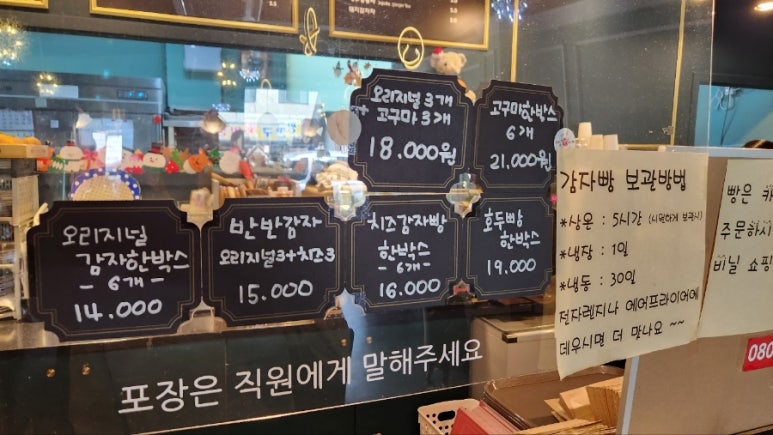 오리지널 3개
+ 고구마 3개
18.000원
고구마한박스
6개
21.000원
오리지널
감자한박스
- 6개 -
14.000
반반감자
오리지널3+치즈3
15.000
치즈감자빵
한박스
- 6개 -
16.000
호두빵
한박스
19.000
감자빵 보관방법
*상온 : 5시간 (시원하게 보관시)
*냉장 : 1일
*냉동 : 30일
전자렌지나 에어프라이어에
데우시면 더 맛나요 ~~
빵은
주문하시
비닐 쇼핑
080
포장은 직원에게 말해주세요